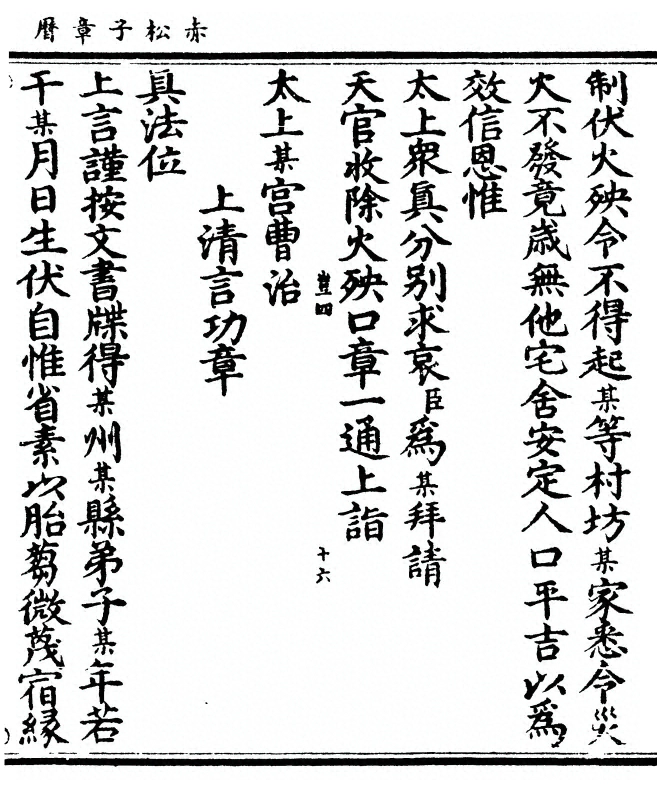 赤松子章曆
制伏火殃令不得起某等村坊某家悉令災
火不發竟歲無他宅舍安定人口平吉以爲
效信恩惟
太上衆真分別求哀臣爲某拜請
天官收除火殃口章一通上詣
豈四 十六
太上某宫曹治
上清言功章
具法位
上言謹按文書牒得某州某縣弟子某年若
干某月日生伏自惟省素以胎蒭微茂宿緣